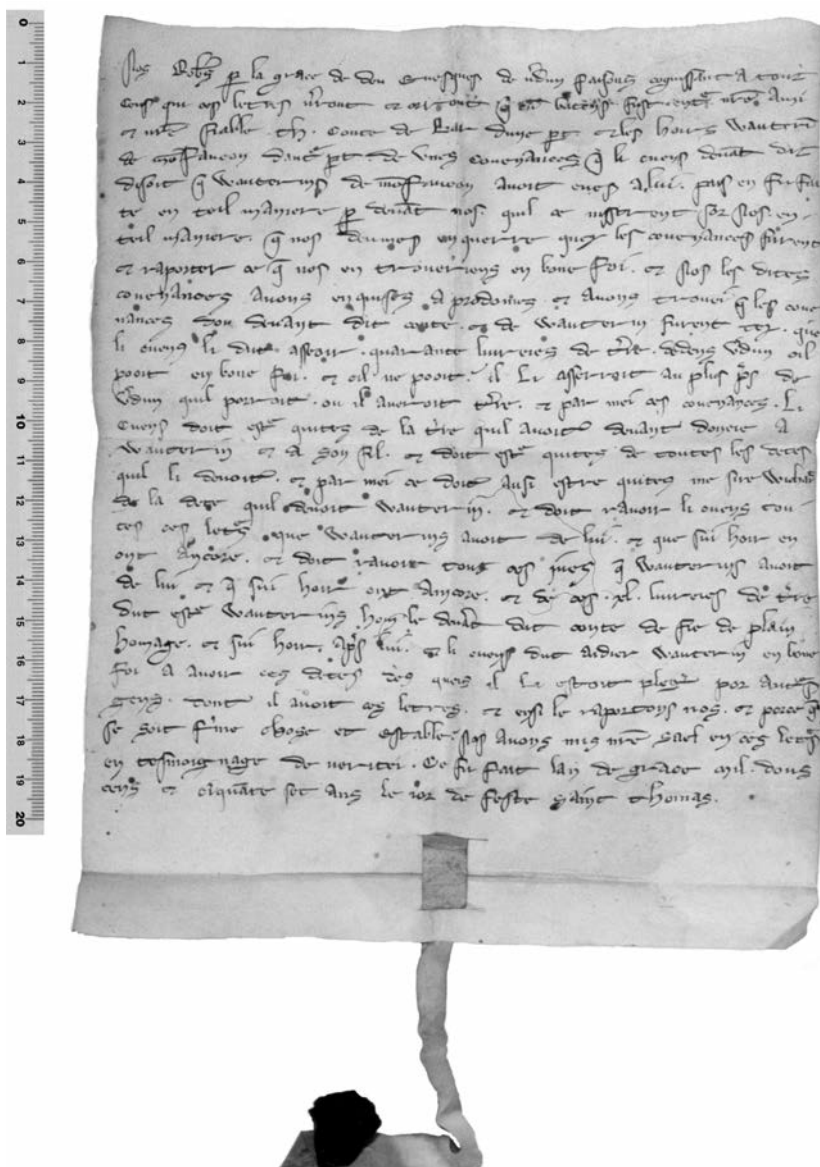 Nos Rob's p la grace de deu Evesques de v'dun faisons cognissant a touz
ceus qui ces lettres v'ront et orront q cū bateās fust entr nr̄e ami
et nr̄e fiable th. conte de Bar dune pt et les hoirs wauterī
de mōfaucon dautr pt de unes covenances q li cuens devāt dit
disoit q wauterins de mōfaucon avoit eues a lui. pais en fu fai
te en teil maniere p devāt nos. quil ce misstrent sor nos. en
teil maniere. q nos deviens enquerre quex les covenances furent
et raporter ce q nos en troveriens en bone foi. et nos les dites
covenances avons enquises a prodomes et avons trovei q les cove
nances dou devant dit conte et de wauterin furent tex. que
li cuens li dut asseoir. quarante livreies de t're. dedens v'dun oil
pooit en bone foi. et oil ne pooit. il li asserroit au plus ps de
v'dun quil porroit. ou il averoit t're. et par mei ces covenances. li
cuens doit estr quites de la t're quil avoit devant donee a
wauterin et a son fil. et doit estr quites de toutes les detes
quil li devoit. et par mei ce doit ausi estre quites me sire Wichas
de la dete quil devoit wauterin. et doit ravoir li cuens tou
tes ces letr's que wauterins avoit de lui. et que sui hoir en
ont ancore. et doit ravoir touz ces jues q wauterins avoit
de lui et q sui hoir ont ancore. et de ces .xl. livreies de t're
dut estr wauterins hom le devāt dit conte de fie de plain
homage. et sui hoir. aps lui. et li cuens dut aidier wauterin en bone
foi a avoir ces detes des queis il li estoit pleges por autr
gens. dont il avoit ces letres. et ensi le raportons nos. et porce q
se soit f'me chose et estable. nos avons mis nr̄e sael en ces letr's
en tesmoignage de veritei. Ce fu fait lan de grace mil. dous
cens et ciquāte set ans le jor de feste saint thomas.
0
1
2
3
4
5
6
7
8
9
10
11
12
13
14
15
16
17
18
19
20